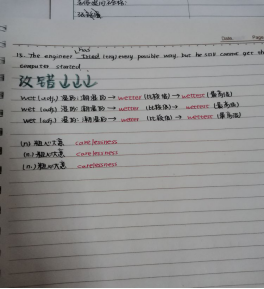 Date. Page
has
13. The engineer tried (try) every possible way, but he still cannot get the
computer started.
改错↓↓↓
wet (adj.) 湿的; 潮湿的 → wetter (比较级) → wettest (最高级)
wet (adj.) 湿的; 潮湿的 → wetter (比较级) → wettest (最高级)
wet (adj.) 湿的; 潮湿的 → wetter (比较级) → wettest (最高级)
(n.) 粗心大意 carelessness
(n.) 粗心大意 carelessness
(n.) 粗心大意 carelessness